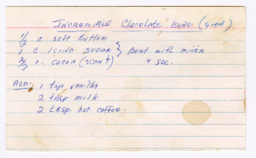 INCREDIBLE Chocolate Icing (Good)
1/2 c. soft Butter
1 c ICING SUGAR } Beat with mixer
2/3 c. COCOA (SCANT) 4 sec.
ADD: 1 tsp vanilla
2 tbsp milk
2 tbsp. hot coffee.